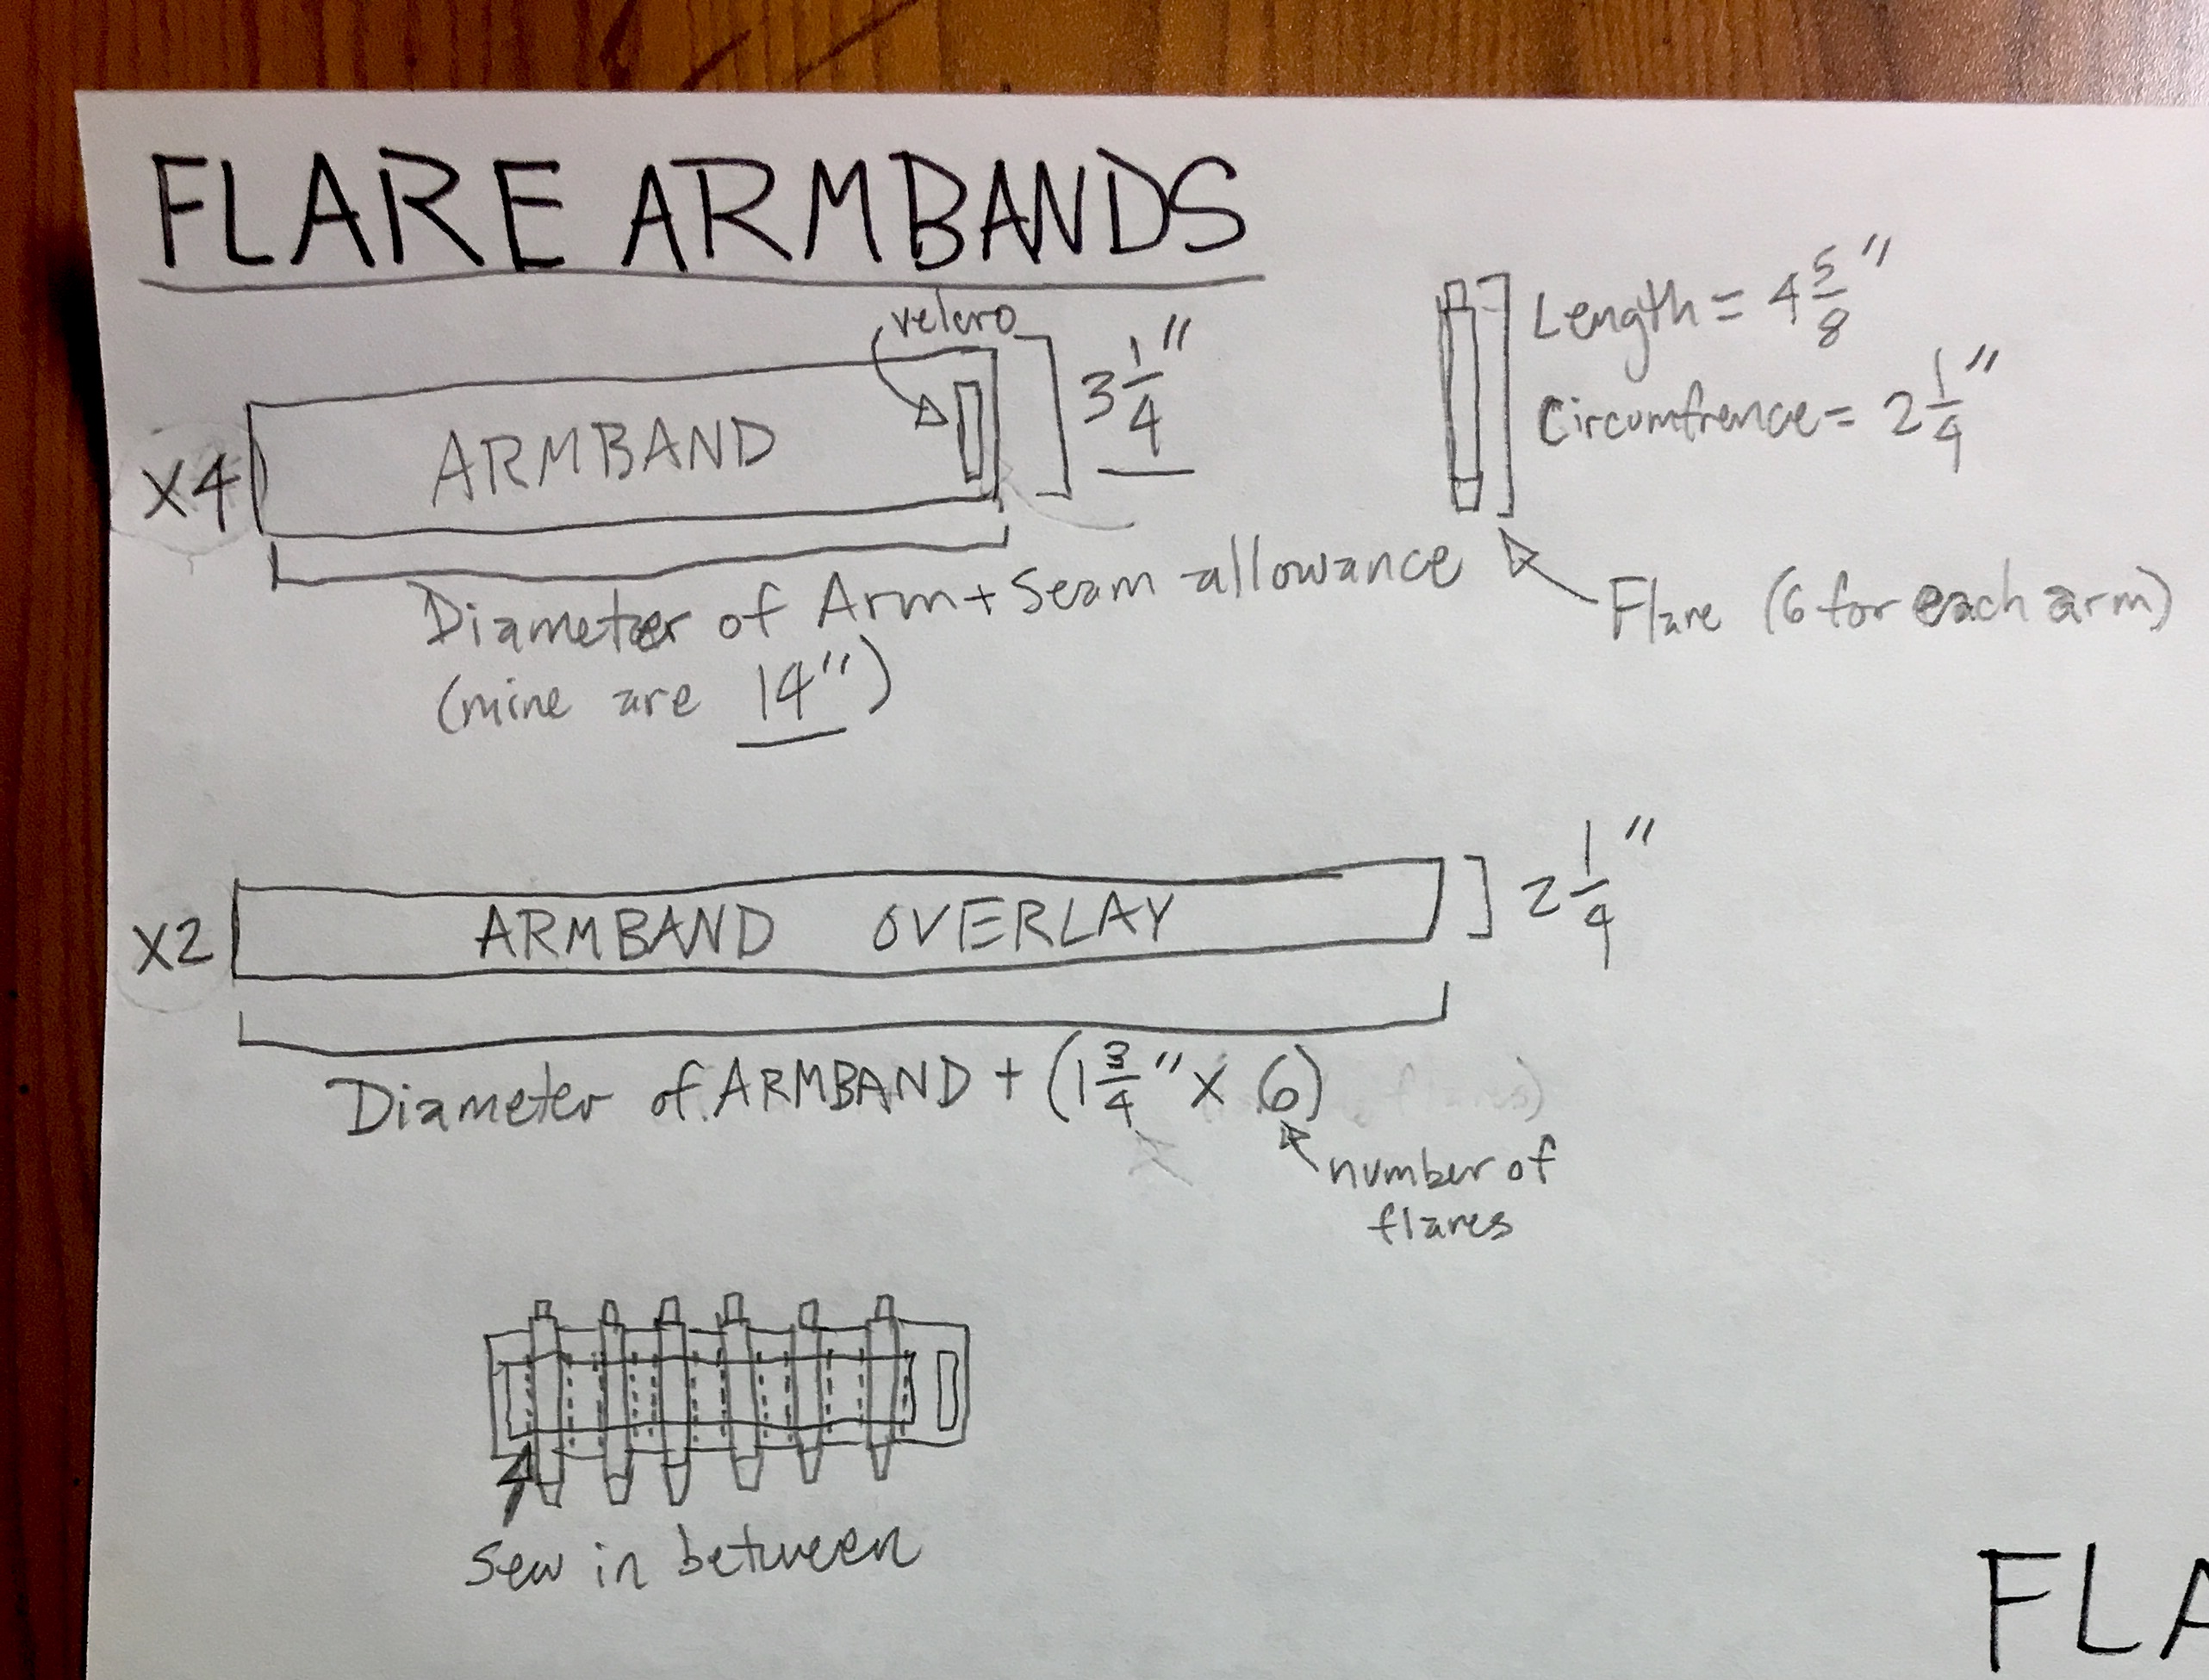 FLARE ARMBANDS
velcro
3 1/4"
X4
ARMBAND
Diameter of Arm + Seam allowance
(mine are 14")
Length = 4 5/8"
Circumfrence = 2 1/4"
Flare (6 for each arm)
X2
ARMBAND OVERLAY
2 1/4"
Diameter of ARMBAND + (1 3/4" X 6)
number of
flares
Sew in between
FLA